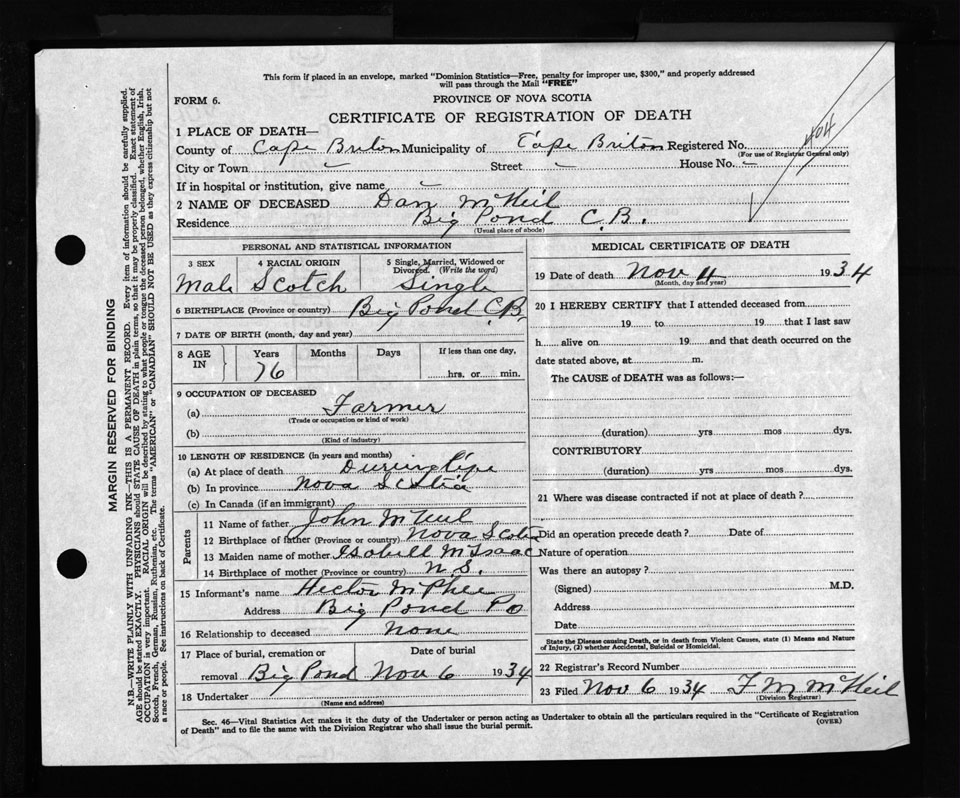 This form if placed in an envelope, marked "Dominion Statistics—Free, penalty for improper use, $300," and properly addressed
will pass through the Mail "FREE"
FORM 6.
PROVINCE OF NOVA SCOTIA
CERTIFICATE OF REGISTRATION OF DEATH
404
1 PLACE OF DEATH—
County of Cape Briton Municipality of Cape Briton Registered No.
(For use of Registrar General only)
City or Town – Street – House No. –
If in hospital or institution, give name –
2 NAME OF DECEASED Dan McNeil
Residence Big Pond C.B.
(Usual place of abode)
PERSONAL AND STATISTICAL INFORMATION
3 SEX 4 RACIAL ORIGIN 5 Single, Married, Widowed or
Divorced. (Write the word)
Male Scotch Single
6 BIRTHPLACE (Province or country) Big Pond C.B.
7 DATE OF BIRTH (month, day and year)
8 AGE IN Years Months Days If less than one day,
76 hrs. or min.
9 OCCUPATION OF DECEASED
(a) Farmer
(Trade or occupation or kind of work)
(b)
(Kind of industry)
10 LENGTH OF RESIDENCE (in years and months)
(a) At place of death During life
(b) In province Nova Scotia
(c) In Canada (if an immigrant)
Parents
11 Name of father John McNeil
12 Birthplace of father (Province or country) Nova Scotia
13 Maiden name of mother Isobell McIsaac
14 Birthplace of mother (Province or country) N.S.
15 Informant's name Hector McPhee
Address Big Pond Po
16 Relationship to deceased None
17 Place of burial, cremation or Date of burial
removal Big Pond Nov 6 1934
18 Undertaker
(Name and address)
MEDICAL CERTIFICATE OF DEATH
19 Date of death Nov 4 1934
(Month, day and year)
20 I HEREBY CERTIFY that I attended deceased from
19 to 19 that I last saw
h alive on 19 and that death occurred on the
date stated above, at m.
The CAUSE of DEATH was as follows:—
(duration) yrs mos dys.
CONTRIBUTORY
(duration) yrs mos dys.
21 Where was disease contracted if not at place of death?
Did an operation precede death? Date of
Nature of operation
Was there an autopsy?
(Signed) M.D.
Address
Date
State the Disease causing Death, or in death from Violent Causes, state (1) Means and Nature
of Injury, (2) whether Accidental, Suicidal or Homicidal.
22 Registrar's Record Number
23 Filed Nov 6 1934 F M McNeil
(Division Registrar)
Sec. 46—Vital Statistics Act makes it the duty of the Undertaker or person acting as Undertaker to obtain all the particulars required in the "Certificate of Registration
of Death" and to file the same with the Division Registrar who shall issue the burial permit.
(OVER)
MARGIN RESERVED FOR BINDING
N.B.—WRITE PLAINLY WITH UNFADING INK—THIS IS A PERMANENT RECORD. Every item of information should be carefully supplied.
AGE should be stated EXACTLY. PHYSICIANS should STATE CAUSE OF DEATH in plain terms, so that it may be properly classified. Exact statement of
OCCUPATION is very important. RACIAL ORIGIN will be described by stating to what people or tongue the deceased person belonged, whether English, Irish,
Scotch, French, German, Russian, Ruthenian, etc. The terms "AMERICAN" or "CANADIAN" SHOULD NOT BE USED as they express citizenship but not
a race or people. See instructions on back of Certificate.